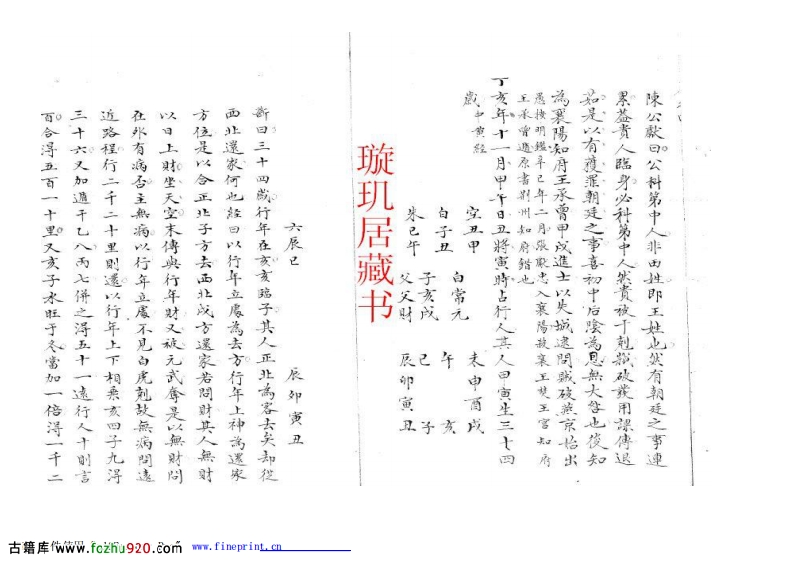 陳公獻曰公科第中人非由姓即王姓也然有朝廷之事連
累益貴人臨身必科第中人然貴被干剋
茹是以有獲罪朝廷之事喜初中后陰為恩無大咎也後知
為襄陽知府王承曾甲戌進士以失城逮問賊破燕京始出
愚按明鑑辛巳年二月張獻忠入襄陽殺襄王焚王宮知府
王承曾遁原書荆州知府錯也
丁亥年十一月甲午日丑將寅時占行人其人田寅生三十四
歲中黄經
空丑甲 白常元 未申酉戌
白子丑 子亥戌 午 亥
朱巳午 父父財 巳 子
辰卯寅丑
璇玑居藏书
六辰巳 辰卯寅丑
斷曰三十四歲行年在亥亥臨子其人正北為客去矣却從
西北還家何也經曰以行年立處為去方行年上神為還家
方位是以合正北子方去西北戌方還家若問財其人無財
以日上財坐天空末傳與行年財又被元武奪是以無財問
在外有病否主無病以行年立處不見白虎剋故無病問遠
近路程行二千二十里則還以行年上下相乘亥四子九得
三十六又加遁干乙八丙七併之得五十一遠行人十則言
百合得五百一十里又亥子水旺于冬當加一倍得一千二
古籍库 www.fozhu920.com
www.fineprint.cn